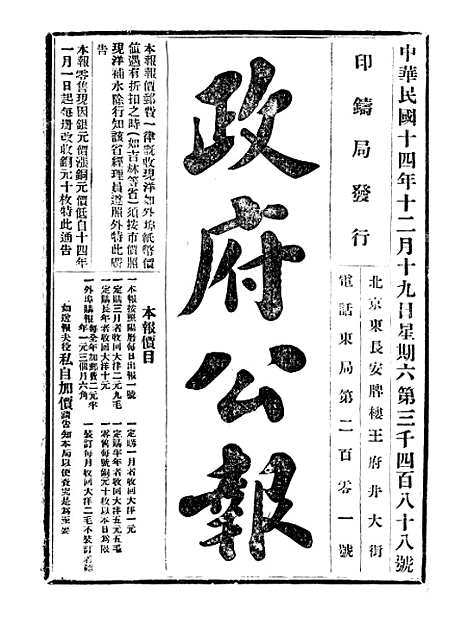 中華民國十四年十二月十九日星期六第三千四百八十八號
印鑄局發行
北京東長安牌樓王府井大街
電話東局第二百零一號
政府公報
本報報價郵費一律收現洋如外埠紙幣價
值遇有折扣之時(如吉林等省)須按市價照
現洋補水除行知該省經理員遵照外特此廣
告
本報零售現因銀元價漲銅元價低自十四年
一月一日起每册改收銅元十枚特此通告
本報價目
一本報按照陽曆每日出報一號
一定購三月者收回大洋二元九毛
一定購長年者收回大洋十元
一外埠購報每全年加郵費二元半
年一元三個月六角
一定購一月者收回大洋一元
一定購半年者收回大洋五元五毛
一零售每號銅元十枚以本日為限
一裝訂每月收回大洋二毛不裝訂者聽
如遇報夫役私自加價請告知本局以便查究是為至要